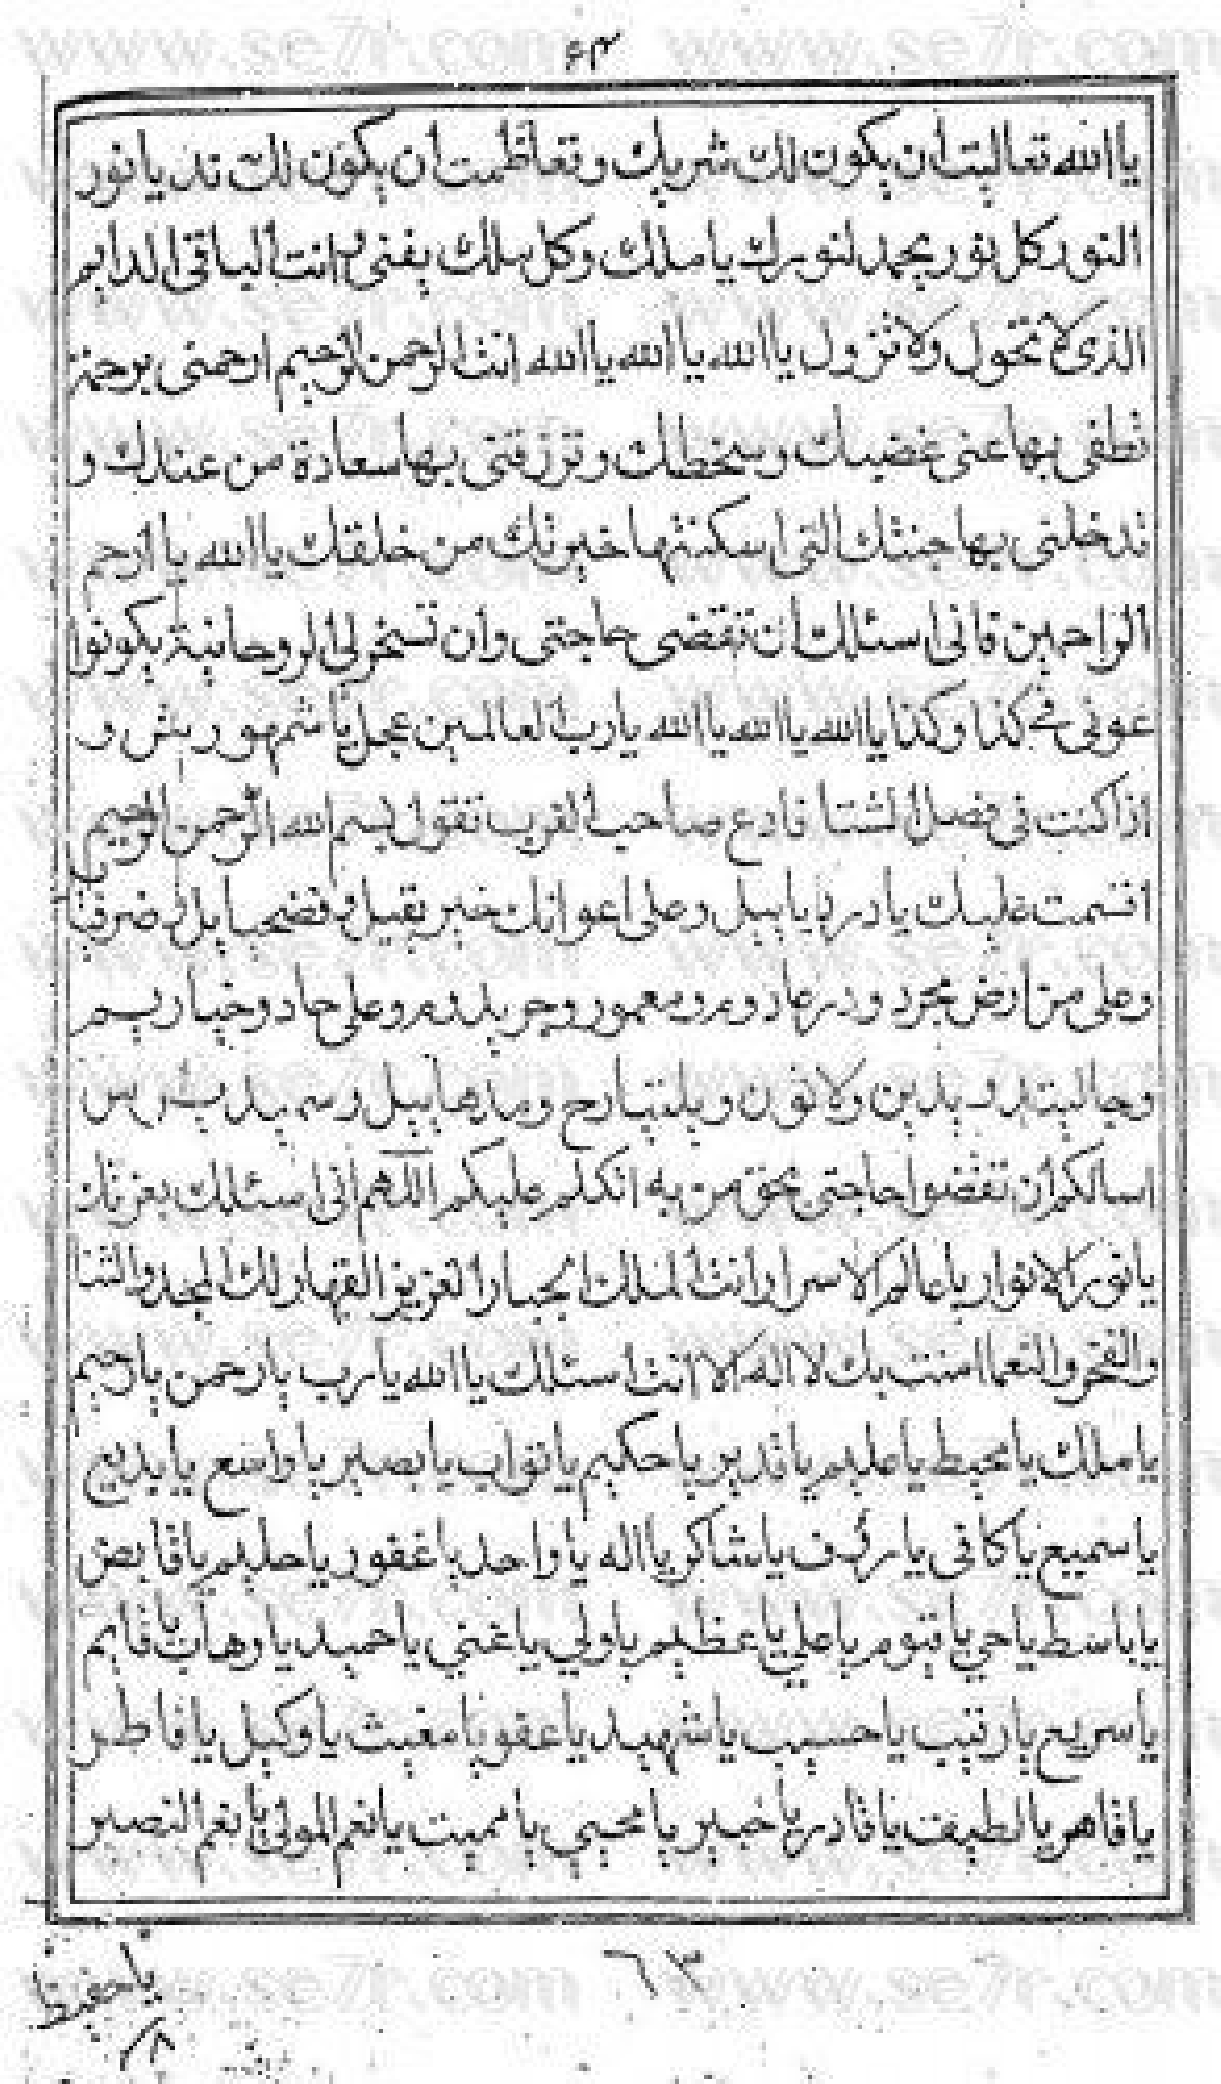 ۶۳
يا الله تعاليت أن يكون لك شريك وتعاظمت أن يكون لك ند يا نور
النور كل نور يخمد لنورك يا ملك وكل ملك يفنى انت الباقي الدايم
الذي لا تحول ولا تزول يا الله يا الله يا الله انت الرحمن الرحيم ارحمني برحمة
تطفي بها عني غضبك وسخطك وترزقني بها سعادة من عندك و
تدخلني بها جنتك التي اسكنتها خيرتك من خلقك يا الله يا ارحم
الراحمين فاني اسئلك أن تقضى حاجتي وان تسخر لي الروحانية يكونوا
عوني في كذا وكذا يا الله يا الله يا الله يا رب العالمين عجل يا شمهورش و
اذا كنت في فصل الشتا فادع صاحب الغرب تقول بسم الله الرحمن الرحيم
اقسمت عليك يا دربايابيل وعلى اعوانك
وعلى من ارض
اسالكم أن تقضوا حاجتي بحق من به اتكلم عليكم اللهم اني اسئلك بعزتك
يا نور الانوار يا عالم الاسرار انت الملك الجبار العزيز القهار لك المجد والثنا
والفخر والنعما امنت بك لا اله الا انت اسئلك يا الله يا رب يا رحمن يا رحيم
يا ملك يا محيط يا عليم يا قدير يا حكيم يا تواب يا بصير يا واسع يا بديع
يا سميع يا كافي يا رؤف يا شاكر يا اله يا واحد يا غفور يا حليم يا قابض
يا باسط يا حي يا قيوم يا علي يا عظيم يا ولي يا غني يا حميد يا وهاب يا قايم
يا سريع يا رقيب يا حسيب يا شهيد يا عفو يا مغيث يا وكيل يا فاطر
يا قاهر يا لطيف يا قادر يا خبير يا محيي يا مميت يا نعم المولى يا نعم النصير
يا حفيظ
٦٣